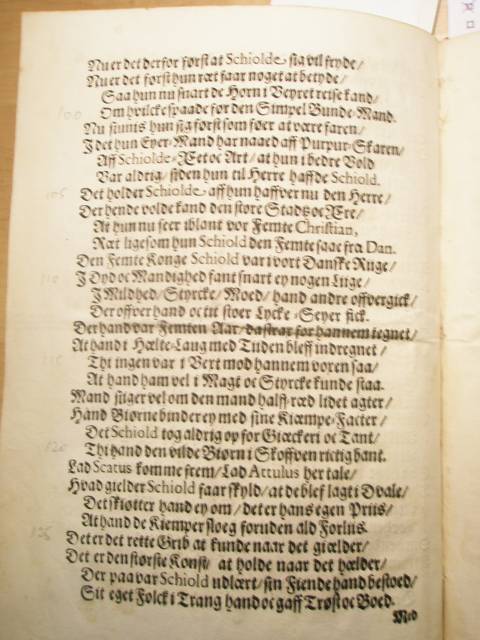 Nu er det derfor først at Schiolde sig vil fryde/
Nu er det først hun ræt faar noget at betyde/
Saa hun nu snart de Horn i Veyret reise kand/
Om hvilcke spaade før den Simpel Bunde-Mand.
100
Nu siunis hun sig først som føer at være faren/
I det hun Eyer-Mand har naaed aff Purpur-Skaren/
Aff Schiolde-Æt oc Art/ at hun i bedre Vold
Var aldrig/ siden hun til Herre haffde Schiold.
105
Det holder Schiolde aff hun haffver nu den Herre/
Der hende volde kand den store Stads oc Ære/
At hun nu seer iblant vor Femte Christian,
Ræt ligesom hun Schiold den Femte saae fra Dan.
Den Femte Konge Schiold var i vort Danske Rige/
110
I Dyd oc Mandighed fant snart ey nogen Liige/
I Mildhed/ Styrcke/ Moed/ hand andre offvergick/
Der offver hand oc tit stoer Lycke-Seyer fick.
Der hand var Femten Aar/ da strax for hannem tegnet/
At hand i Hælte-Laug med Tiden bleff indregnet/
115
Thi ingen var i Vert mod hannem voxen saa/
At hand ham vel i Magt oc Styrcke kunde staa.
Mand siiger vel om den mand halff-ræd lidet agter/
Hand Biørne binder ey med sine Kiæmpe-Facter/
120
Det Schiold tog aldrig op for Giæckeri oc Tant/
Thi hand den vilde Biørn i Skoffven rictig bant.
Lad Scatus komme frem/ Lad Attulus her tale/
Hvad gielder Schiold faar skyld/ at de blef lagt i Dvale/
Det skiøtter hand ey om/ det er hans egen Priis/
At hand de Kiemper sloeg foruden ald Forlis.
125
Det er det rette Grib at kunde naar det giælder/
Det er den største Konst/ at holde naar det hælder/
Der paa var Schiold udlært/ sin Fiende hand bestoed/
Sit eget Folck i Trang hand oc gaff Trøst oc Boed.
Med